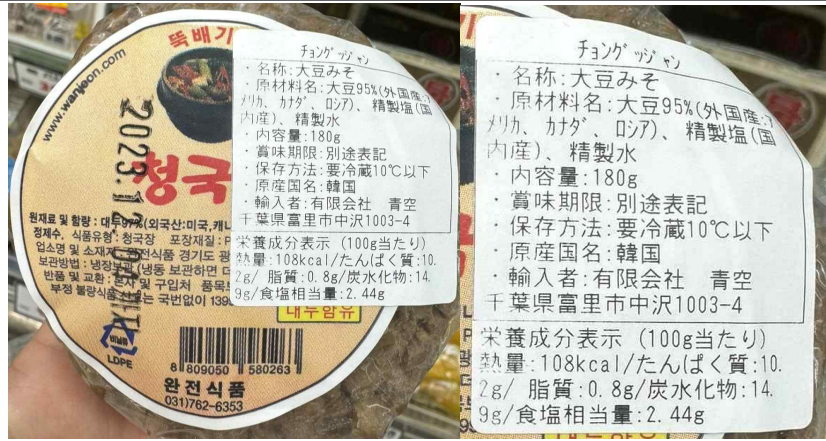 뚝배기
www.wanjeon.com
2023.12
청국
원재료 및 함량 : 대두
정제수, 식품유형 : 청국장 포장재질 : P
업소명 및 소재지
보관방법 : 냉장
반품 및 교환 : 본사 및 구입처 품목
부정 불량식품 는 국번없이 1399
LDPE
8 809050 580263
완전식품
031)762-6353
대두함유
チョングッジャン
・名称:大豆みそ
・原材料名:大豆95%(外国産:ア
メリカ、カナダ、ロシア)、精製塩(国
内産)、精製水
・内容量:180g
・賞味期限:別途表記
・保存方法:要冷蔵10℃以下
・原産国名:韓国
・輸入者:有限会社 青空
千葉県富里市中沢1003-4
栄養成分表示 (100g当たり)
熱量:108kcal/たんぱく質:10.
2g/ 脂質:0.8g/炭水化物:14.
9g/食塩相当量:2.44g
チョングッジャン
・名称:大豆みそ
・原材料名:大豆95%(外国産:ア
メリカ、カナダ、ロシア)、精製塩(国
内産)、精製水
・内容量:180g
・賞味期限:別途表記
・保存方法:要冷蔵10℃以下
・原産国名:韓国
・輸入者:有限会社 青空
千葉県富里市中沢1003-4
栄養成分表示 (100g当たり)
熱量:108kcal/たんぱく質:10.
2g/ 脂質:0.8g/炭水化物:14.
9g/食塩相当量:2.44g